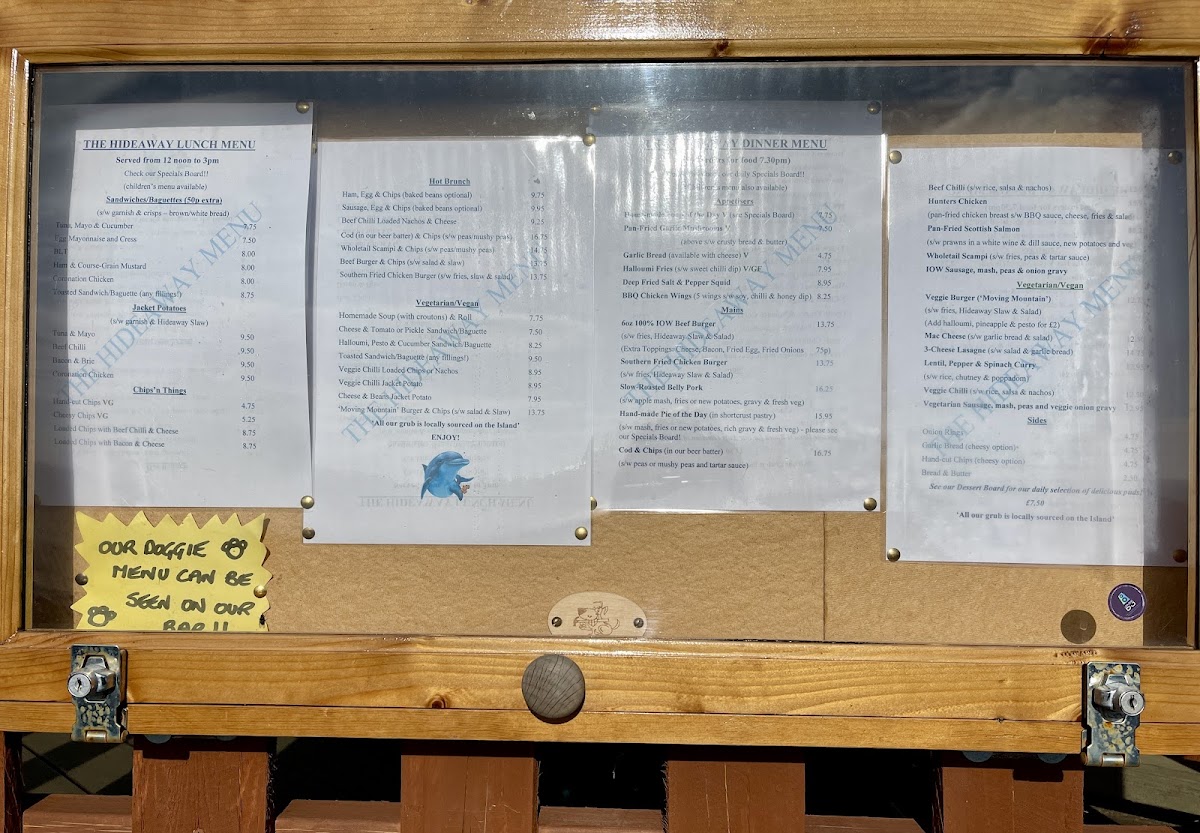 THE HIDEAWAY LUNCH MENU
Served from 12 noon to 3pm
Check our Specials Board!!
(children's menu available)
Sandwiches/Baguettes (50p extra)
(s/w garnish & crisps – brown/white bread)
Tuna, Mayo & Cucumber 7.75
Egg Mayonnaise and Cress 7.50
BLT 8.00
Ham & Course-Grain Mustard 8.00
Coronation Chicken 8.00
Toasted Sandwich/Baguette (any fillings!) 8.75
Jacket Potatoes
(s/w garnish & Hideaway Slaw)
Tuna & Mayo 9.50
Beef Chilli 9.50
Bacon & Brie 9.50
Coronation Chicken 9.50
Chips'n Things
Hand-cut Chips VG 4.75
Cheesy Chips VG 5.25
Loaded Chips with Beef Chilli & Cheese 8.75
Loaded Chips with Bacon & Cheese 8.75
THE HIDEAWAY MENU
Hot Brunch
Ham, Egg & Chips (baked beans optional) 9.75
Sausage, Egg & Chips (baked beans optional) 9.95
Beef Chilli Loaded Nachos & Cheese 9.25
Cod (in our beer batter) & Chips (s/w peas/mushy peas) 16.75
Wholetail Scampi & Chips (s/w peas/mushy peas) 14.75
Beef Burger & Chips (s/w salad & slaw) 13.75
Southern Fried Chicken Burger (s/w fries, slaw & salad) 13.75
Vegetarian/Vegan
Homemade Soup (with croutons) & Roll 7.75
Cheese & Tomato or Pickle Sandwich/Baguette 7.50
Halloumi, Pesto & Cucumber Sandwich/Baguette 8.25
Toasted Sandwich/Baguette (any fillings!) 9.50
Veggie Chilli Loaded Chips or Nachos 8.95
Veggie Chilli Jacket Potato 8.95
Cheese & Beans Jacket Potato 7.95
'Moving Mountain' Burger & Chips (s/w salad & Slaw) 13.75
'All our grub is locally sourced on the Island'
ENJOY!
THE HIDEAWAY MENU
DINNER MENU
for food 7.30pm)
daily Specials Board!!
menu also available)
Appetisers
Day V (see Specials Board)
Pan-Fried Garlic Mushrooms V
(above s/w crusty bread & butter)
Garlic Bread (available with cheese) V 4.75
Halloumi Fries (s/w sweet chilli dip) V/GF 7.95
Deep Fried Salt & Pepper Squid 8.95
BBQ Chicken Wings (5 wings s/w soy, chilli & honey dip) 8.25
Mains
6oz 100% IOW Beef Burger 13.75
(s/w fries, Hideaway Slaw & Salad)
(Extra Toppings: Cheese, Bacon, Fried Egg, Fried Onions 75p)
Southern Fried Chicken Burger 13.75
(s/w fries, Hideaway Slaw & Salad)
Slow-Roasted Belly Pork 16.25
(s/w apple mash, fries or new potatoes, gravy & fresh veg)
Hand-made Pie of the Day (in shortcrust pastry) 15.95
(s/w mash, fries or new potatoes, rich gravy & fresh veg) - please see
our Specials Board!
Cod & Chips (in our beer batter) 16.75
(s/w peas or mushy peas and tartar sauce)
HIDEAWAY MENU
Beef Chilli (s/w rice, salsa & nachos)
Hunters Chicken
(pan-fried chicken breast s/w BBQ sauce, cheese, fries & salad
Pan-Fried Scottish Salmon
(s/w prawns in a white wine & dill sauce, new potatoes and veg
Wholetail Scampi (s/w fries, peas & tartar sauce)
IOW Sausage, mash, peas & onion gravy
Vegetarian/Vegan
Veggie Burger ('Moving Mountain')
(s/w fries, Hideaway Slaw & Salad)
(Add halloumi, pineapple & pesto for £2)
Mac Cheese (s/w garlic bread & salad)
3-Cheese Lasagne (s/w salad & garlic bread)
Lentil, Pepper & Spinach Curry
(s/w rice, chutney & poppadom)
Veggie Chilli (s/w rice, salsa & nachos)
Vegetarian Sausage, mash, peas and veggie onion gravy
Sides
Onion Rings 4.75
Garlic Bread (cheesy option) 4.75
Hand-cut Chips (cheesy option) 4.75
Bread & Butter 2.50
See our Dessert Board for our daily selection of delicious puds!
£7.50
'All our grub is locally sourced on the Island'
HIDEAWAY MENU
OUR DOGGIE
MENU CAN BE
SEEN ON OUR
BAR!!